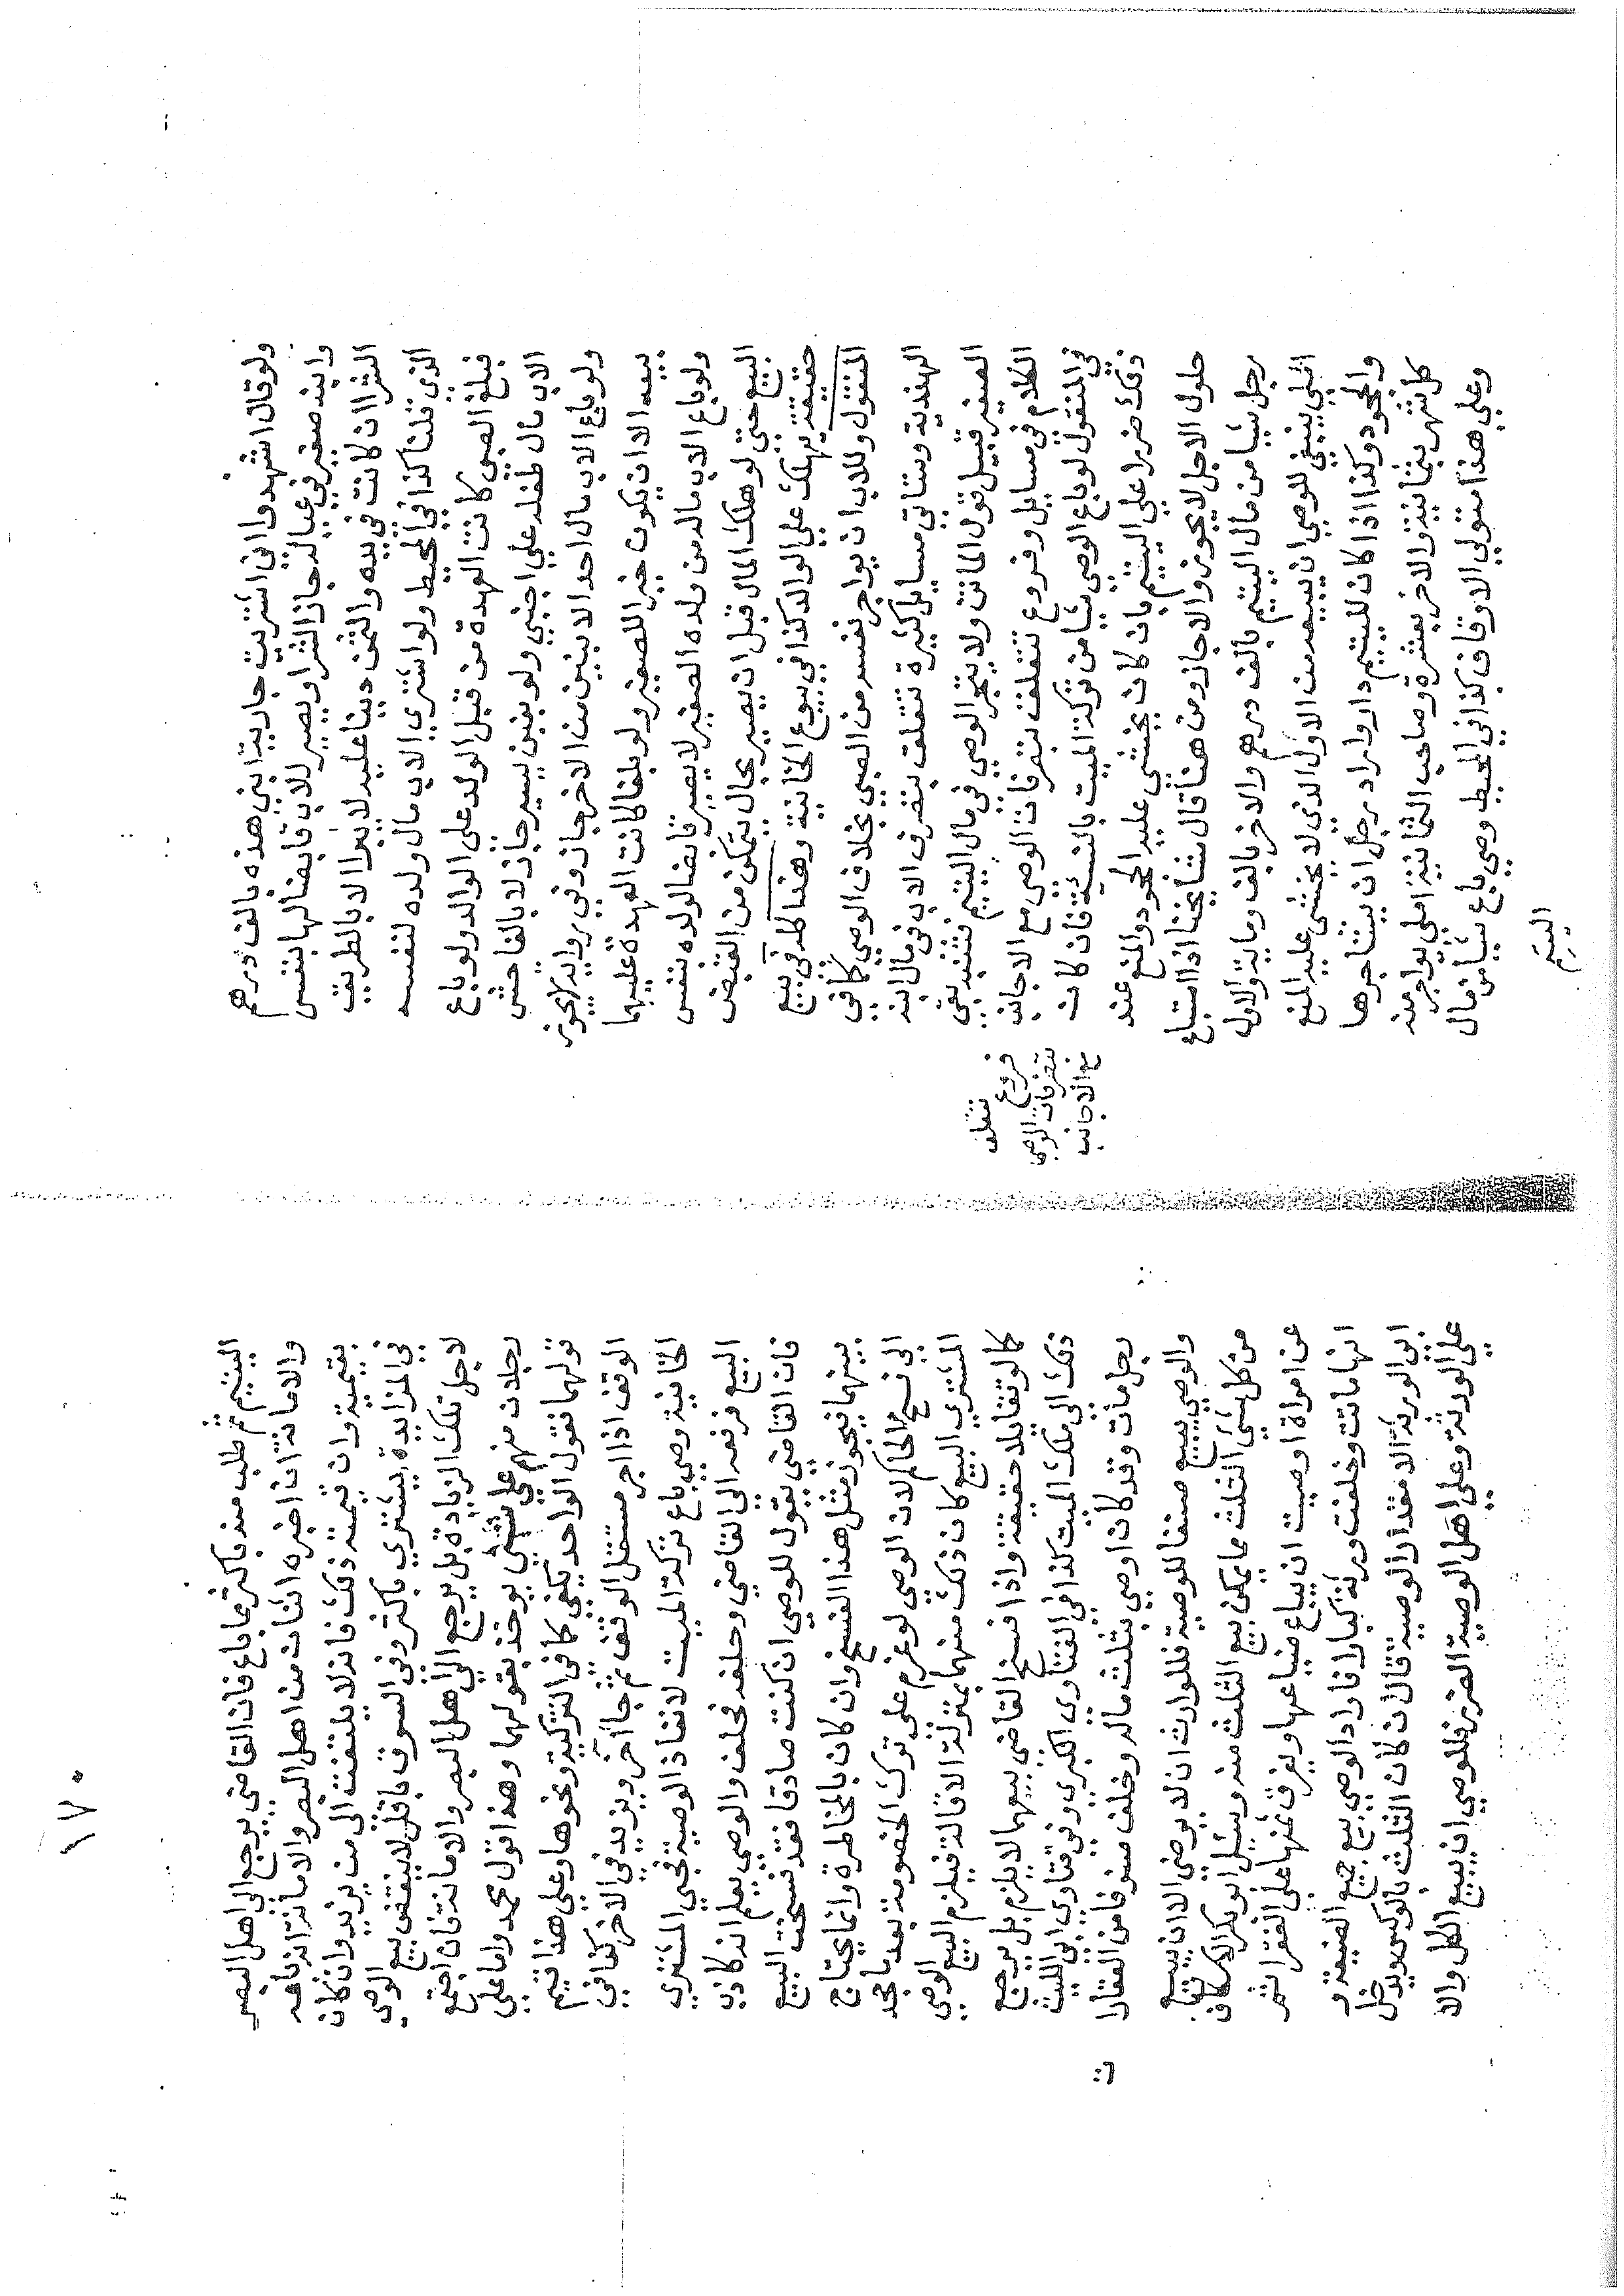 ولو قال اشهدوا اني اشتريت جارية ابني هذه بالف درهم
وابنه صغير في عياله جاز الشرا ويصير للاب قابضا لها بنفس
الشرا ان كانت في يده والثمن دينا عليه لا يبرا الا بالطريق
الذي قلنا كذا في المحيط ولو اشتري الاب مال ولده لنفسه
فبلغ الصبي كانت العهدة من قبل الولد على الوالد ولو باع
الاب مال طفله علي اجنبي ولو بغبن يسير جاز لا بالفاحش
ولو باع الاب مال احد الابنين من الاخر جاز وفي رواية لا يجوز
بيعه الا ان يكون خيرا للصغير ولو بلغا كانت العهدة عليهما
ولو باع الاب ماله من ولده الصغير لا يصير قابضا لولده بنفس
البيع حتى لو هلك المال قبل ان يصير بحال يتمكن من القبض
حقيقة يهلك علي الوالد كذا في بيوع الخانية وهذا كله في بيع
المنقول وللاب ان يواجر نفسه من الصبي بخلاف الوصي كما في
الهندية وستاتي مسايل كثيرة تتعلق بتصرف الاب في مال ابنه
الصغير قبيل قول الماتن ولا يتجر الوصي في مال اليتيم فتنبه بقي
الكلام في مسايل وفروع تتعلق بتصرفات الوصي مع الاجانب
في المنقول لو باع الوصي شيا من تركة الميت بالنسية فان كان
ذلك ضررا علي اليتيم بان كان يخشى عليه الجحود والمنع عند
حلول الاجل لا يجوز والا جاز ومن هنا قال مشايخنا اذا استباع
رجل شيا من مال اليتيم بالف درهم والاخر بالف وماية والاول
املي ينبغي للوصي ان يبيعه من الاول الذي لا يخشى عليه المنع
والجحود وكذا اذا كان لليتيم دار واراد رجل ان يستاجرها
كل شهر بثمانية والاخر بعشرة وصاحب الثمانية املي يواجر منه
وعلي هذا متولي الاوقاف كذا في المحيط وصي باع شيا من مال
اليتيم
فروع
تتعلق
بتصرفات الوصي
مع الاجانب
١٧٠
اليتيم ثم طلب منه باكثر مما باع فان القاضي يرجع الى اهل البصر
والامانة ان اخبره اثنان من اهل البصر والامانة انه باعه
بقيمته وان قيمته ذلك فانه لا يلتفت الى من يزيد وان كان
في المزايدة يشتري باكثر وفي السوق باقل لا ينقض بيع الوصي
لاجل تلك الزيادة بل يرجع الي اهل البصر والامانة فان اجتمع
رجلان منهم علي شي يوخذ بقولهما وهذا قول محمد واما علي
قولهما فقول الواحد يكفي كما في التزكية ونحوها وعلي هذا قيم
الوقف اذا اجر مستغل الوقف ثم جا اخر ويزيد في الاجر كذا في
الخانية وصي باع تركة الميت لانفاذ الوصية فجحد المشتري
البيع فرفعه الى القاضي وحلفه فحلف والوصي يعلم انه كاذب
فان القاضي يقول للوصي ان كنت صادقا فقد فسخت البيع
بينهما فيجوز مثل هذا الفسخ وان كان بالمخاطرة وانما يحتاج
الى فسخ الحاكم لان الوصي لو عزم على ترك الخصومة بعد ما جحد
المشتري البيع كان ذلك منهما بمنزلة الاقالة فيلزم البيع الوصي
كما لو تقايلا حقيقة واذا فسخ القاضي بيعهما لا يلزم بل يرجع
ذلك الى ملك الميت كذا في الفتاوى الكبرى وفي فتاوي ابي الليث
رجل مات وقد كان اوصي بثلث ماله وخلف صنوفا من العقارا
والوصي يبيع صنفا للوصية فللوارث ان لا يرضي الا ان يبيع
من كل شي الثلث مما يمكن بيع الثلث منه وسيل ابو بكر الاسكاف
عن امراة اوصيت ان يباع ضياعها ويفرق ثمنها على الفقرا ثم
انها ماتت وخلفت ورثة كبارا فاراد الوصي بيع جميع الضيعة و
ابي الورثة الا مقدار الوصية قال ان كان الثلث بالوكس ويدخل
علي الورثة وعلي اهل الوصية الضرر فللوصي ان يبيع الكل والا